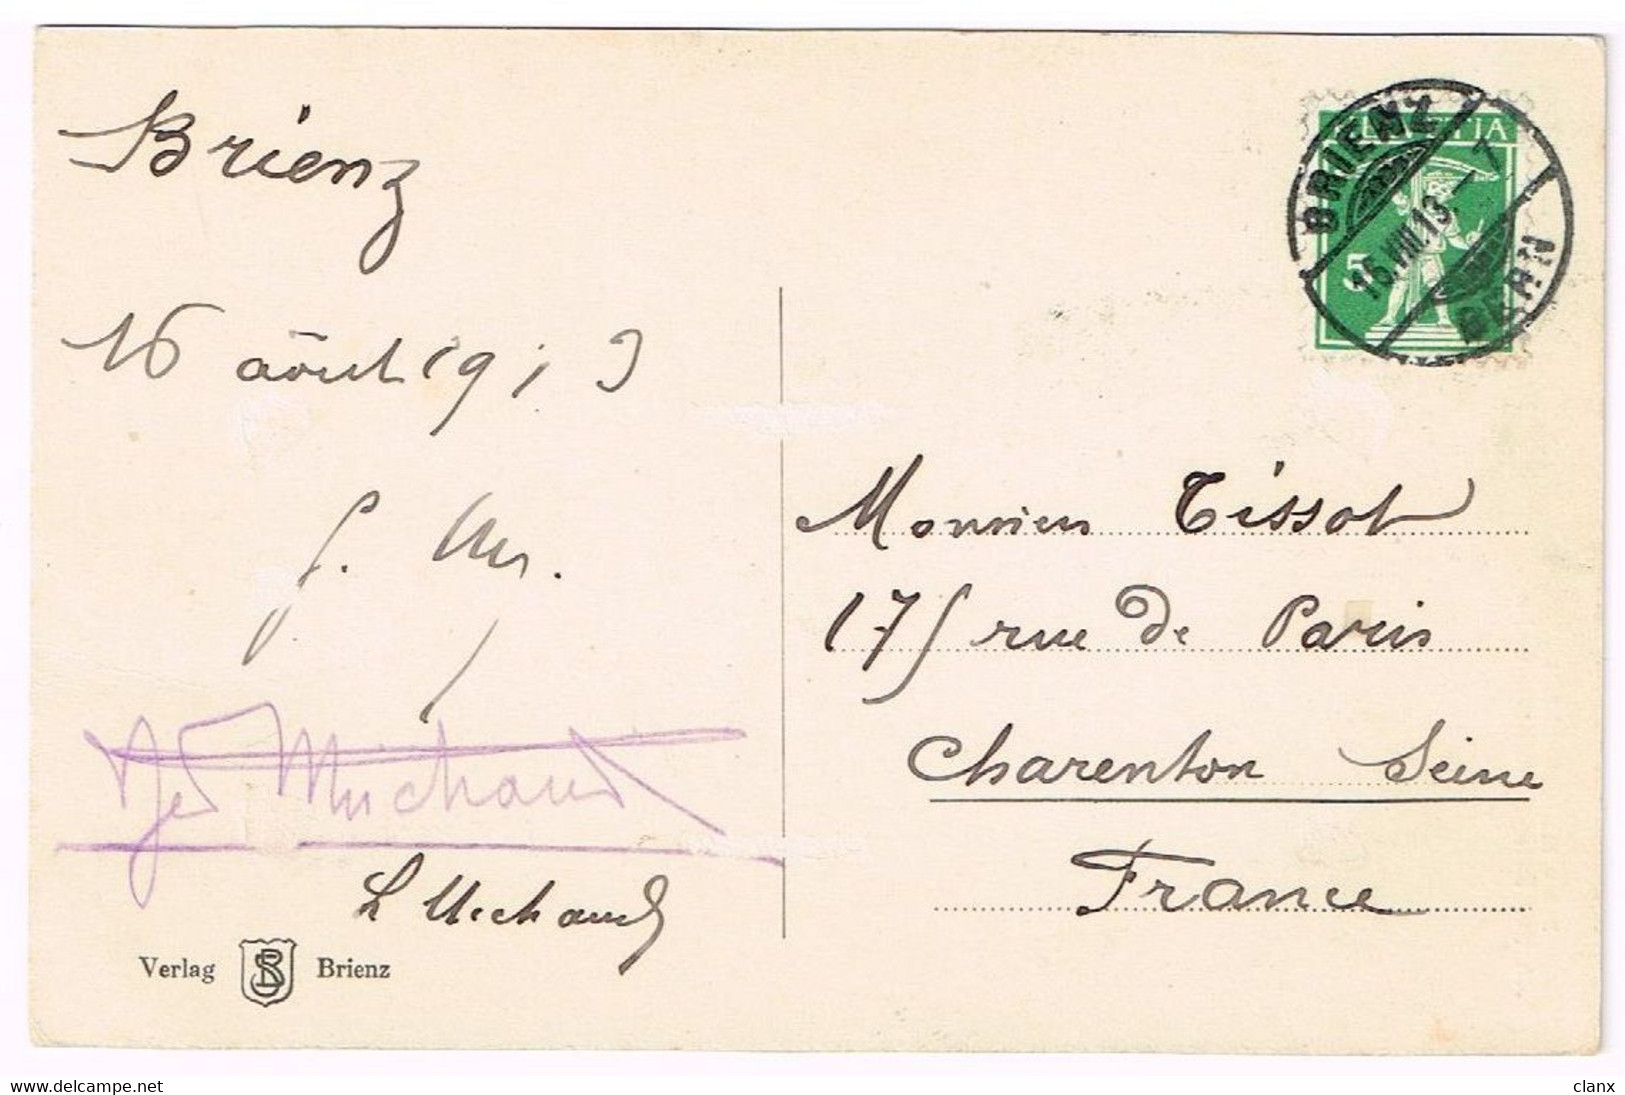 Brienz
16 août 1913
Michaud
L Michaud
Verlag SB Brienz
HELVETIA
5
BRIENZ
16.VIII.13.-7
BERN
Monsieur Tissot
175 rue de Paris
Charenton Seine
France
www.delcampe.net
clanx